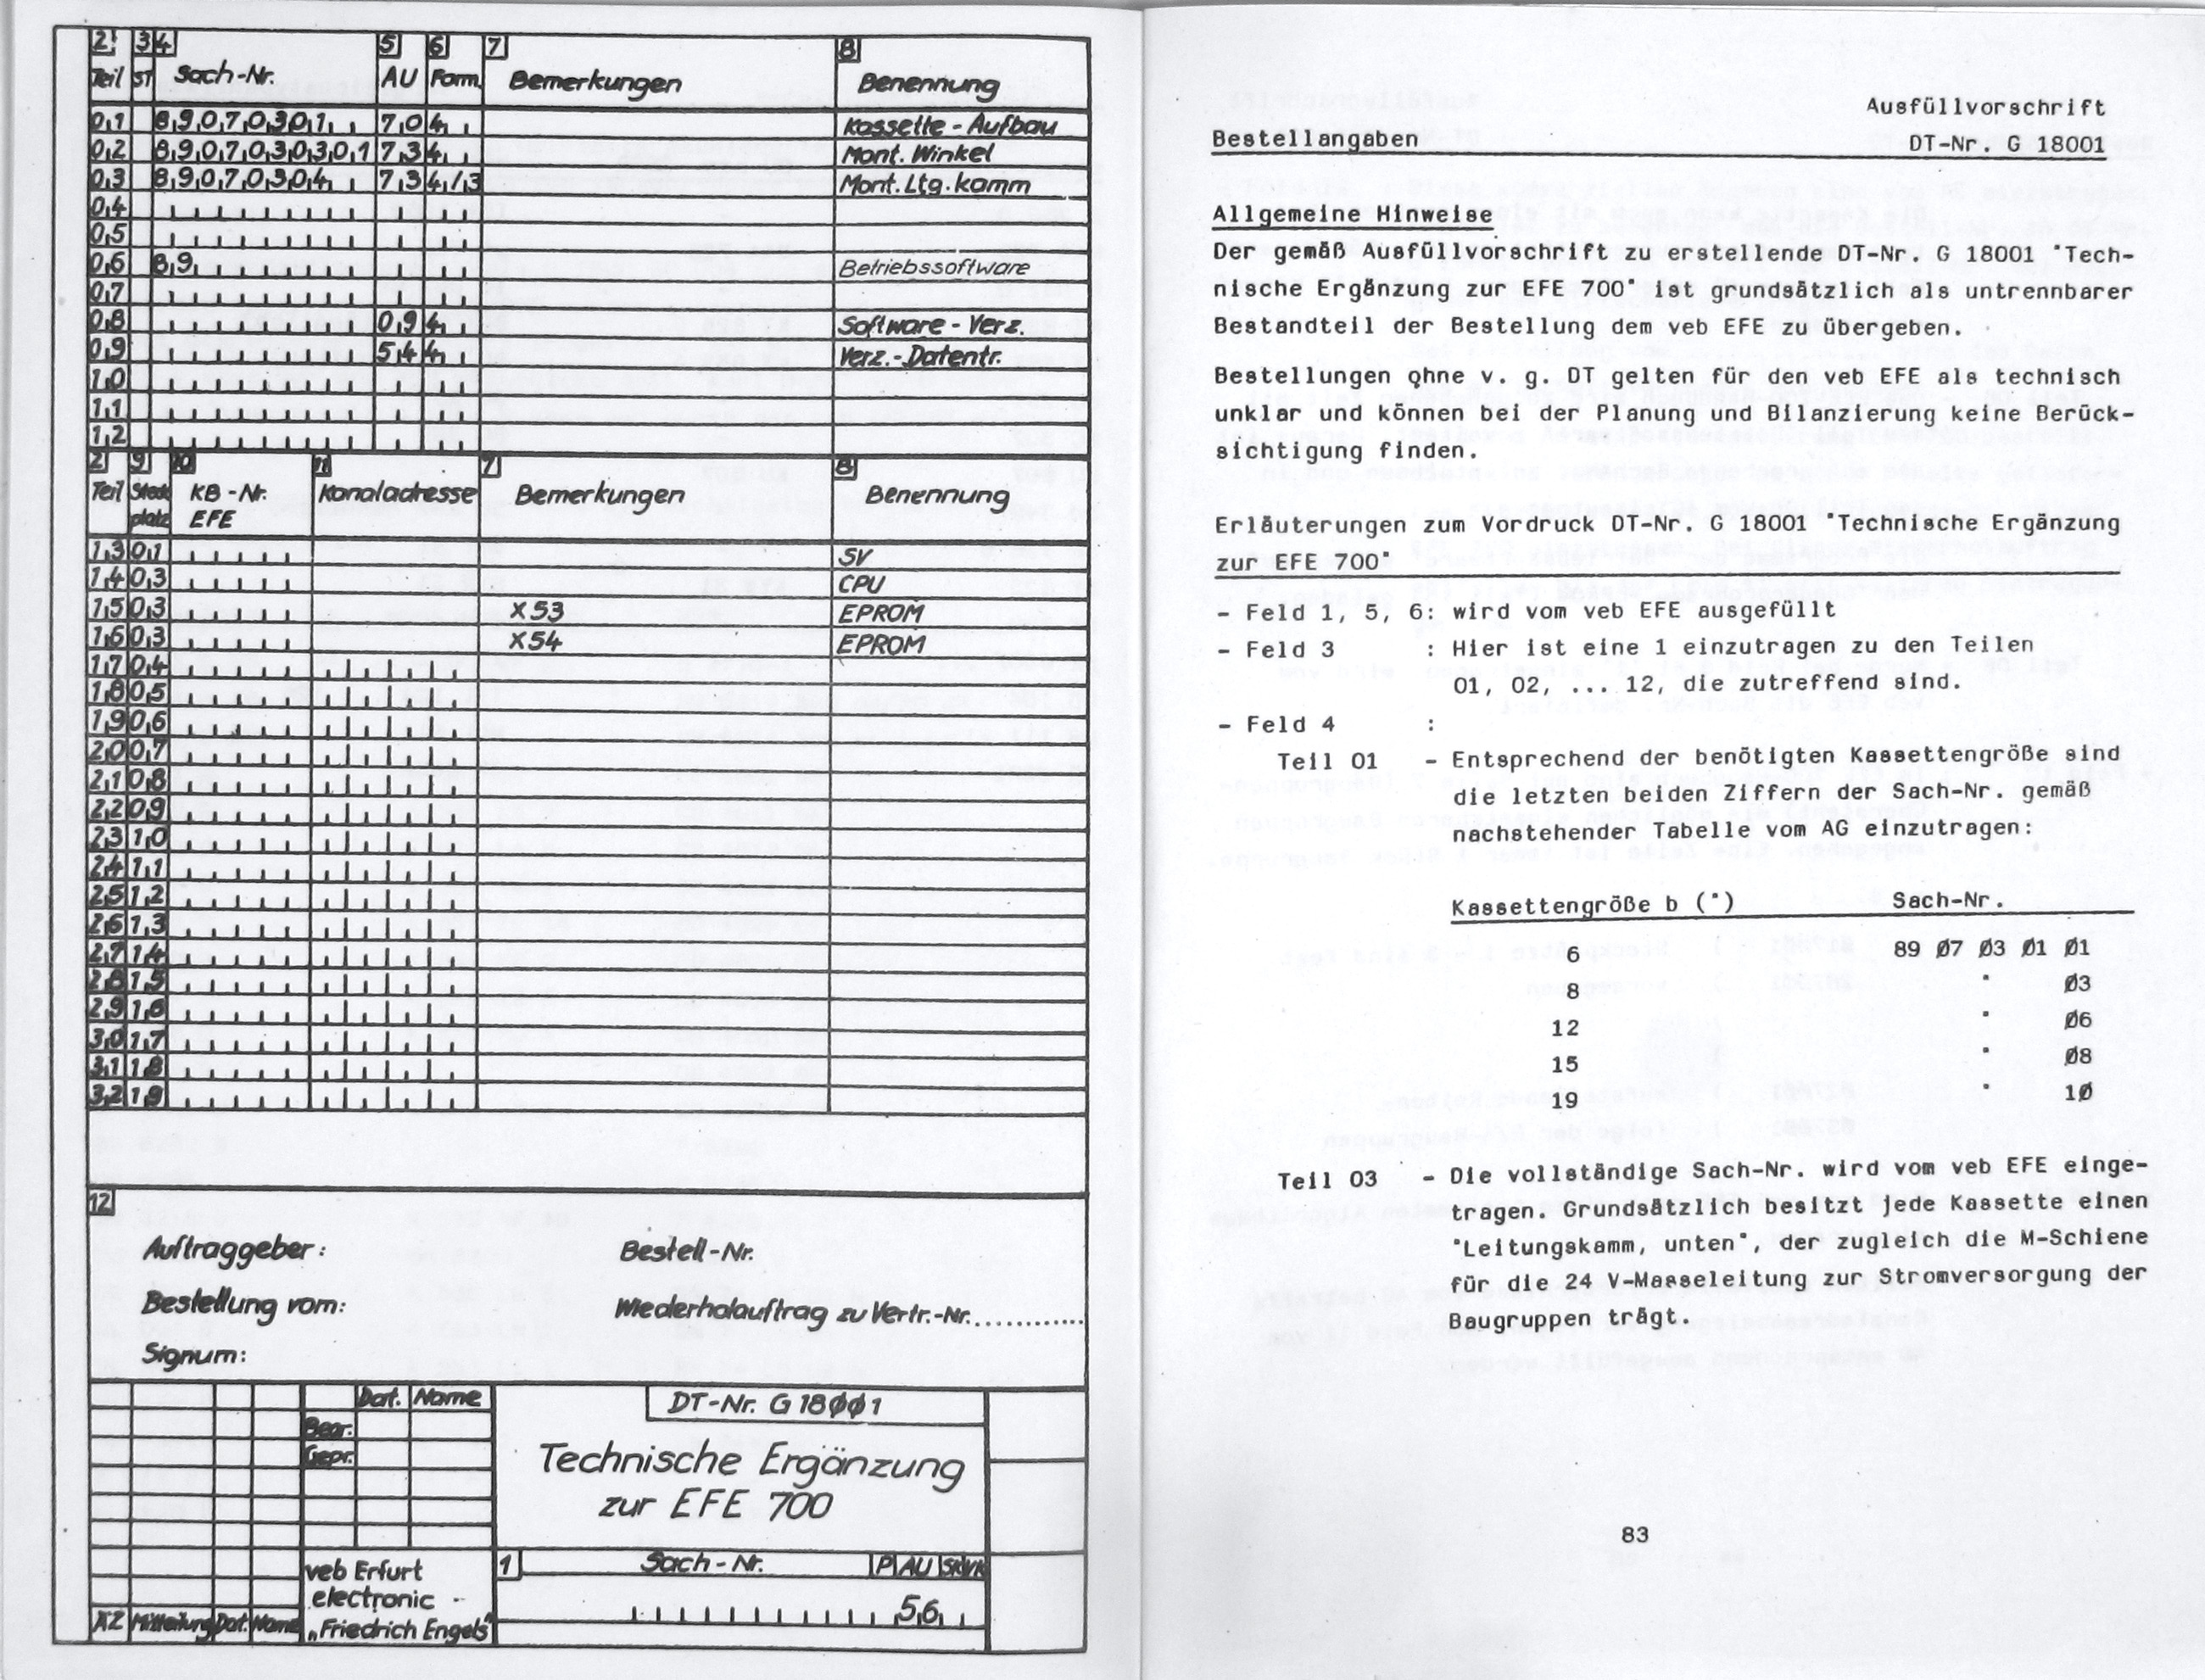 2 3 4 5 6 7 8
Teil ST Sach-Nr. AU Form. Bemerkungen Benennung
0,1 8,9,0,7,0,3,0,1, , 7,0 4, , Kassette - Aufbau
0,2 8,9,0,7,0,3,0,3,0,1 7,3 4, , Mont. Winkel
0,3 8,9,0,7,0,3,0,4, , 7,3 4,/,3 Mont. Ltg. kamm
0,4
0,5
0,6 8,9, Betriebssoftware
0,7
0,8 0,9 4, , Software - Verz.
0,9 5,4 4, , Verz. - Datentr.
1,0
1,1
1,2
2 9 10 11 7 8
Teil Steck platz KB - Nr. EFE Kanaladresse Bemerkungen Benennung
1,3 0,1 SV
1,4 0,3 CPU
1,5 0,3 X53 EPROM
1,6 0,3 X54 EPROM
1,7 0,4
1,8 0,5
1,9 0,6
2,0 0,7
2,1 0,8
2,2 0,9
2,3 1,0
2,4 1,1
2,5 1,2
2,6 1,3
2,7 1,4
2,8 1,5
2,9 1,6
3,0 1,7
3,1 1,8
3,2 1,9
12
Auftraggeber: Bestell-Nr.
Bestellung vom: Wiederholauftrag zu Vertr.-Nr..............
Signum:
Dat. Name DT-Nr. G 18ØØ1
Bear.
Gepr.
Technische Ergänzung
zur EFE 700
veb Erfurt
electronic
„Friedrich Engels"
1 Sach-Nr. P AU SK VK
5,6,
ÄZ Mitteilung Dat. Name
Ausfüllvorschrift
Bestellangaben DT-Nr. G 18001
Allgemeine Hinweise
Der gemäß Ausfüllvorschrift zu erstellende DT-Nr. G 18001 "Tech-
nische Ergänzung zur EFE 700" ist grundsätzlich als untrennbarer
Bestandteil der Bestellung dem veb EFE zu übergeben.
Bestellungen ohne v. g. DT gelten für den veb EFE als technisch
unklar und können bei der Planung und Bilanzierung keine Berück-
sichtigung finden.
Erläuterungen zum Vordruck DT-Nr. G 18001 "Technische Ergänzung
zur EFE 700"
- Feld 1, 5, 6: wird vom veb EFE ausgefüllt
- Feld 3 : Hier ist eine 1 einzutragen zu den Teilen
01, 02, ... 12, die zutreffend sind.
- Feld 4 :
Teil 01 - Entsprechend der benötigten Kassettengröße sind
die letzten beiden Ziffern der Sach-Nr. gemäß
nachstehender Tabelle vom AG einzutragen:
Kassettengröße b (") Sach-Nr.
6 89 Ø7 Ø3 Ø1 Ø1
8 " Ø3
12 " Ø6
15 " Ø8
19 " 1Ø
Teil 03 - Die vollständige Sach-Nr. wird vom veb EFE einge-
tragen. Grundsätzlich besitzt jede Kassette einen
"Leitungskamm, unten", der zugleich die M-Schiene
für die 24 V-Masseleitung zur Stromversorgung der
Baugruppen trägt.
83